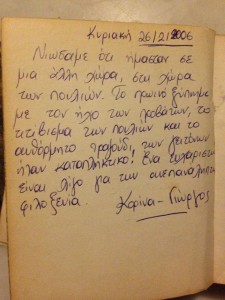 Κυριακή 26/2/2006
Νιώσαμε ότι ήμασταν σε
μια άλλη χώρα, στη χώρα
των πουλιών. Το πρωινό ξύπνημα
με τον ήχο των προβάτων, το
τιτίβισμα των πουλιών και το
αυθόρμητο τραγούδι των γειτόνων
ήταν καταπληκτικό! Ένα ευχαριστώ
είναι λίγο για την ανεπανάληπτη
φιλοξενία.
Κορίνα - Γιώργος